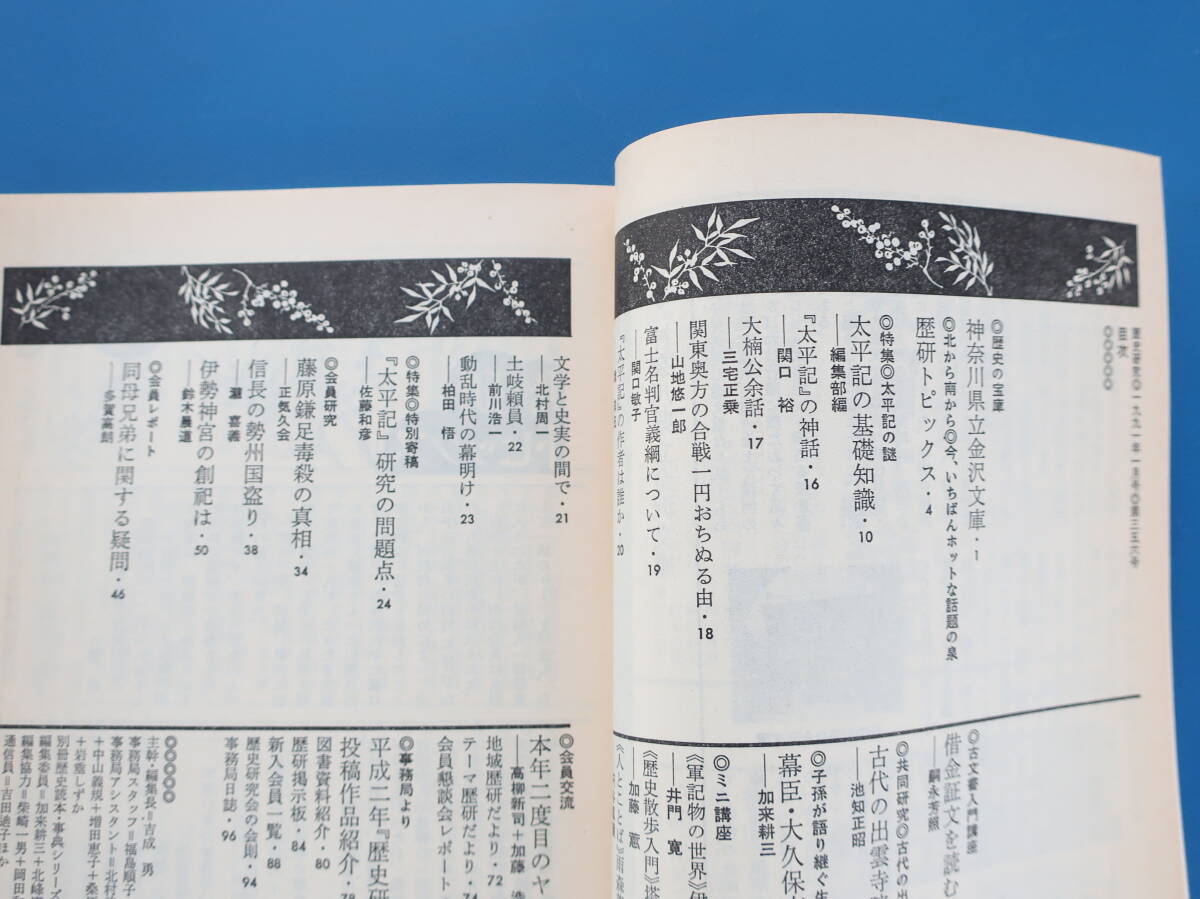 歴史研究◎一九九一年一月号◎第三五六号
目次
◎◎◎◎◎
◎歴史の宝庫
神奈川県立金沢文庫・1
◎北から南から◎今、いちばんホットな話題の泉
歴研トピックス・4
◎特集◎太平記の謎
太平記の基礎知識・10
――編集部編
『太平記』の神話・16
――関口 裕
大楠公余話・17
――三宅正乗
関東奥方の合戦一円おちぬる由・18
――山地悠一郎
富士名判官義綱について・19
――関口敏子
『太平記』の作者は誰か・20
文学と史実の間で・21
――北村周一
土岐頼員・22
――前川浩一
動乱時代の幕明け・23
――柏田 悟
◎特集◎特別寄稿
『太平記』研究の問題点・24
――佐藤和彦
◎会員研究
藤原鎌足毒殺の真相・34
――正気久会
信長の勢州国盗り・38
――瀧 喜義
伊勢神宮の創祀は・50
――鈴木晨道
◎会員レポート
同母兄弟に関する疑問・46
――多賀高朗
◎古文書入門講座
借金証文を読む
――嗣永芳照
◎共同研究◎古代の出
古代の出雲寺
――池知正昭
◎子孫が語り継ぐ先
幕臣・大久保
――加来耕三
◎ミニ講座
《軍記物の世界》伊
――井門 寛
《歴史散歩入門》塔
――加藤 蕙
《人とことば》雨森
◎会員交流
本年二度目のヤ
――高柳新司+加藤 浩
地域歴研だより・72
テーマ歴研だより・74
会員懇談会レポート
◎事務局より
平成二年『歴史研
投稿作品紹介・78
図書資料紹介・80
歴研掲示板・84
新入会員一覧・88
歴史研究会の会則・94
事務局日誌・96
◎◎◎◎◎
主幹・編集長=吉成 勇
事務局スタッフ=福島順子
事務局アシスタント=北村
+中山義規+増田恵子+桑原
+岩意しずか
別冊歴史読本・事典シリーズ
編集委員=加来耕三+北峰
編集協力=柴崎一男+岡田和
通信員=吉田迪子ほか